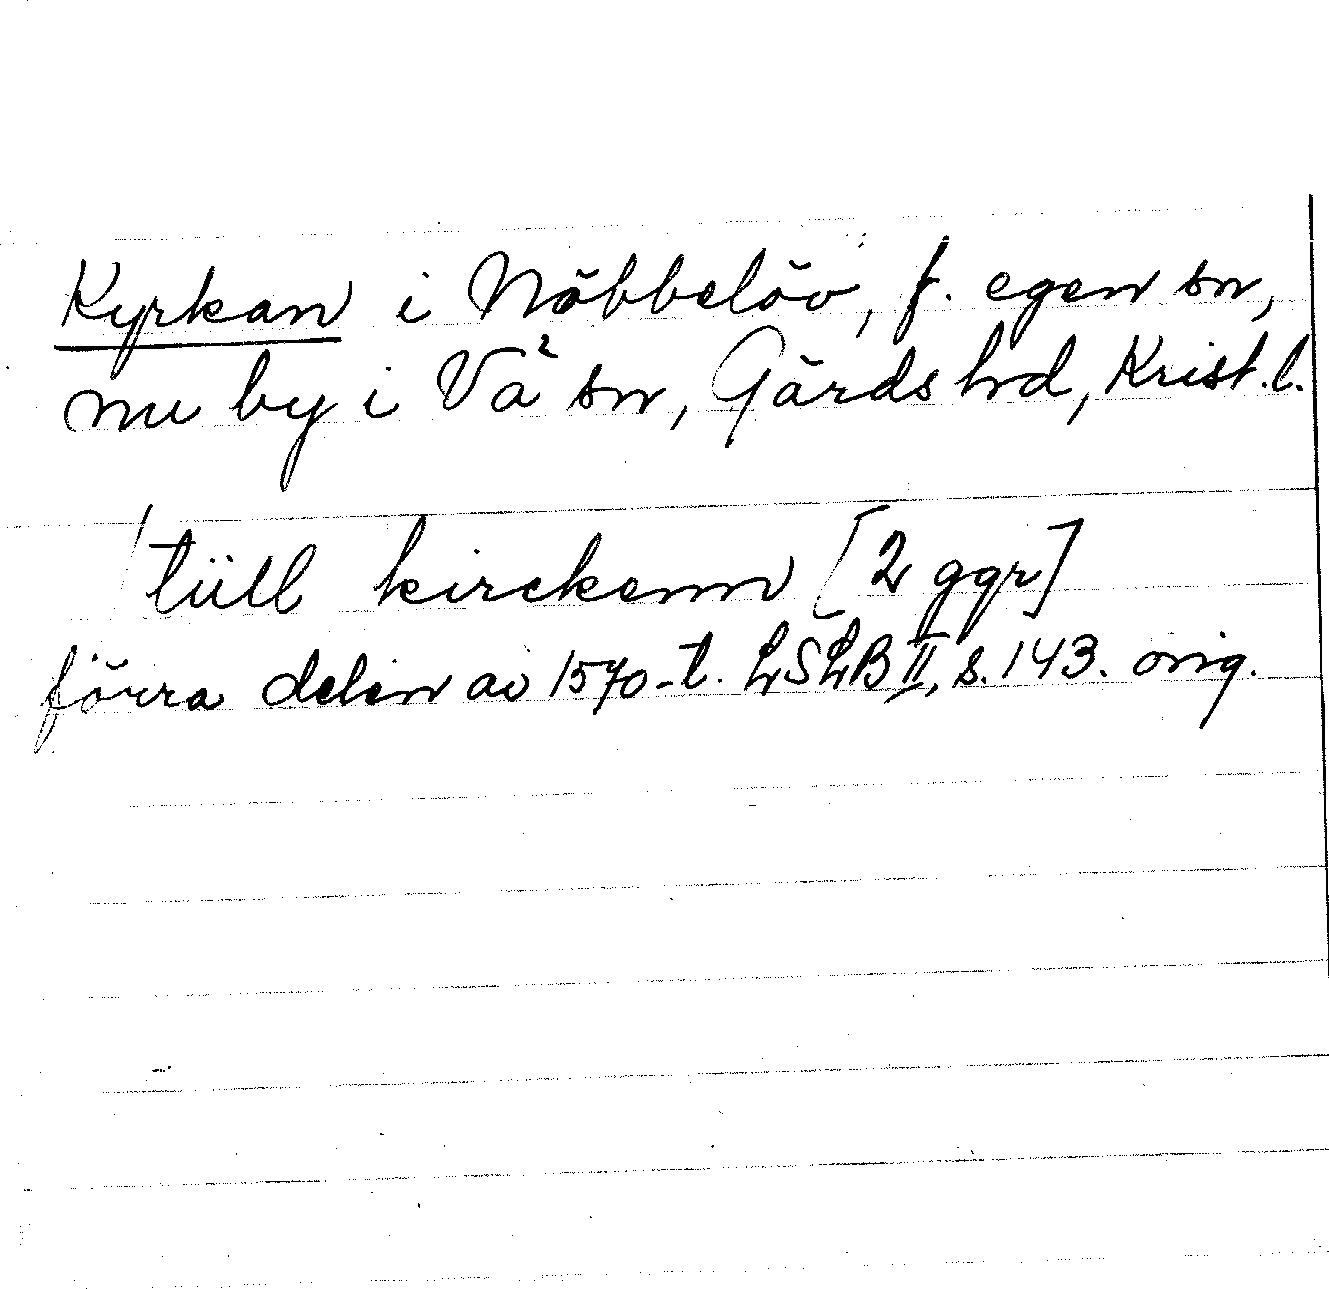 Kyrkan i Nöbbelöv, f. egen sn,
nu by i Vä sn, Gärds hd, Krist. l.
tüll kirckenn [2 ggr]
förra delen av 1570-t. LSLB II, s. 143. orig.